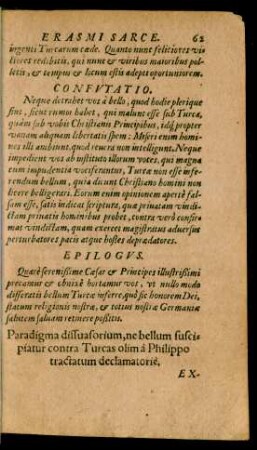 ERASMI SARCE. 62
ingenti Turcarum cæde. Quanto nunc feliciores vic
tores redibitis, qui nunc & viribus maioribus pol-
letis, & tempus & locum estis adepti oportuniorem.
CONFVTATIO.
Neque detrahet vos à bello, quod hodie plerique
sint, sicut rumor habet, qui malunt esse sub Turca,
quàm sub vobis Christianis Principibus, idq́ propter
vanam aliquam libertatis spem: Miseri enim homi-
nes illi ambiunt, quod reuera non intelligunt. Neque
impedient vos ab instituto illorum votes, qui magna
cum impudentia vociferantur, Turcæ non esse infe-
rendum bellum, quia dicunt Christiano homini non
licere belligerari. Eorum enim opinionem apertè fal-
sam esse, satis indicat scriptura, quæ priuatam vindi-
ctam priuatis hominibus prohibet, contra verò confir-
mat vindictam, quam exercet magistratus aduersus
perturbatores pacis atque hostes deprædatores.
EPILOGVS.
Quarè serenissime Cæsar & Principes illustrissimi
precamur & obnixè hortamur vos, vt nullo modo
differatis bellum Turcæ inferre, quò sic honorem Dei,
statum religionis nostræ, & totius nostræ Germaniæ
salutem saluam retinere possitis.
Paradigma dissuasorium, ne bellum susci-
piatur contra Turcas olim á Philippo
tractatum declamatoriè.
EX-